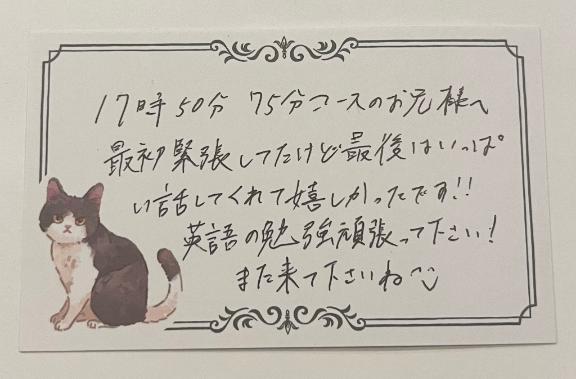 17時50分 75分コースのお兄様へ
最初緊張してたけど最後はいっぱ
い話してくれて嬉しかったです!!
英語の勉強頑張って下さい!
また来て下さいね